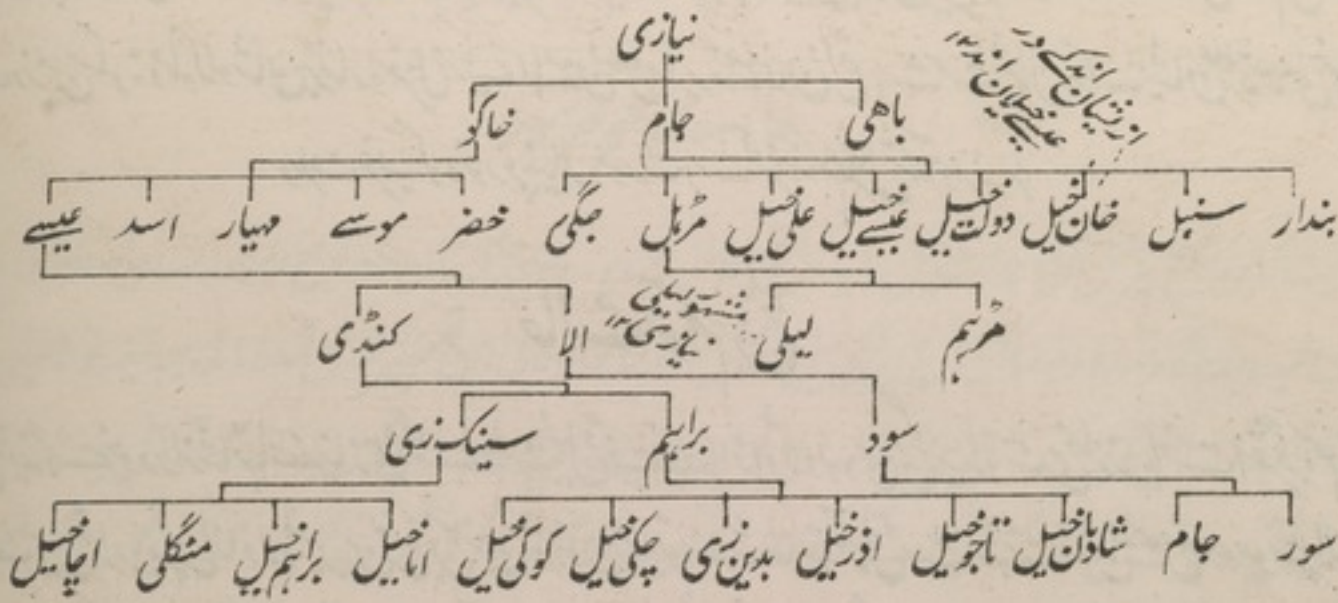 نیازی
باهی جام خاکو
ازیشان اندکے در
عیسے خیلان اند ۱۲
بندار سنبل خان خیل دولت خیل عیسے خیل علی خیل مڑہل جگی خضر موسے مہیار اسد عیسے
مڑہم لیلی الا کنڈی
سود براہیم سینک زی
سور جام شادن خیل تاجو خیل اذر خیل بدین زی چکی خیل کوکی خیل اما خیل براہم خیل منگلی اچا خیل